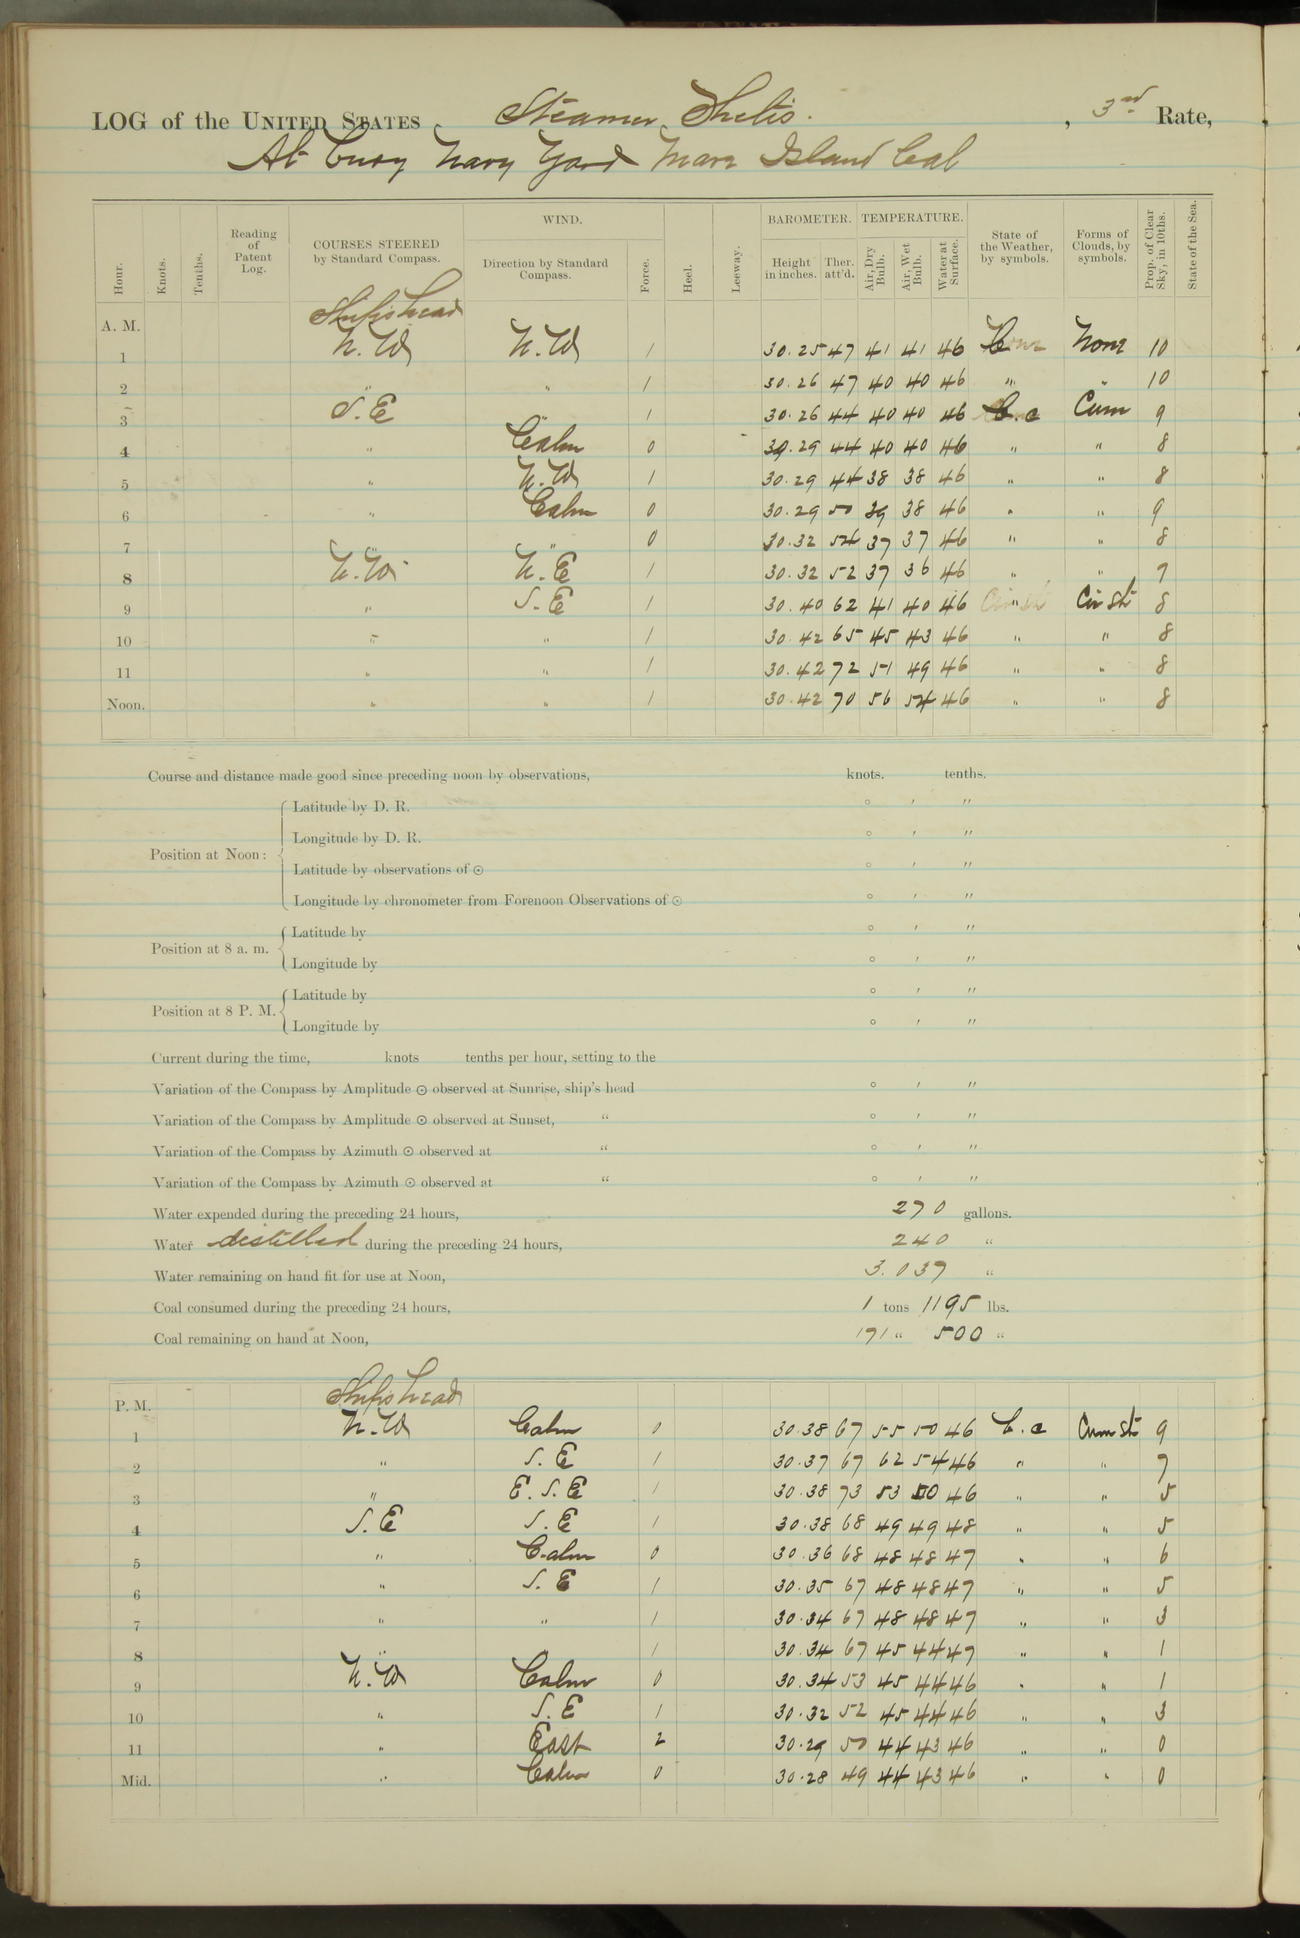 LOG of the UNITED STATES Steamer Thetis. , 3rd Rate,
At Buoy Navy Yard Mare Island Cal
WIND. BAROMETER. TEMPERATURE.
Hour. Knots. Tenths. Reading of Patent Log. COURSES STEERED by Standard Compass. Direction by Standard Compass. Force. Heel. Leeway. Height in inches. Ther. att'd. Air, Dry Bulb. Air, Wet Bulb. Water at Surface. State of the Weather, by symbols. Forms of Clouds, by symbols. Prop. of Clear Sky, in 10ths. State of the Sea.
A. M. Ship's head
1 N.W N.W 1 30.25 47 41 41 46 None 10
2 " " 1 30.26 47 40 40 46 " " 10
3 S.E " 1 30.26 44 40 40 46 b.c Cum 9
4 " Calm 0 30.29 44 40 40 46 " " 8
5 " N.W 1 30.29 44 38 38 46 " " 8
6 " Calm 0 30.29 50 39 38 46 " " 9
7 " " 0 30.32 54 37 37 46 " " 8
8 N.W. N.E 1 30.32 52 37 36 46 " " 7
9 " S.E 1 30.40 62 41 40 46 " Cir St 8
10 " " 1 30.42 65 45 43 46 " " 8
11 " " 1 30.42 72 51 49 46 " " 8
Noon. " " 1 30.42 70 56 54 46 " " 8
Course and distance made good since preceding noon by observations, knots. tenths.
Position at Noon:
Latitude by D. R. ° ′ ″
Longitude by D. R. ° ′ ″
Latitude by observations of ⊙ ° ′ ″
Longitude by chronometer from Forenoon Observations of ⊙ ° ′ ″
Position at 8 a. m.
Latitude by ° ′ ″
Longitude by ° ′ ″
Position at 8 P. M.
Latitude by ° ′ ″
Longitude by ° ′ ″
Current during the time, knots tenths per hour, setting to the
Variation of the Compass by Amplitude ⊙ observed at Sunrise, ship's head ° ′ ″
Variation of the Compass by Amplitude ⊙ observed at Sunset, " ° ′ ″
Variation of the Compass by Azimuth ⊙ observed at " ° ′ ″
Variation of the Compass by Azimuth ⊙ observed at " ° ′ ″
Water expended during the preceding 24 hours, 270 gallons.
Water distilled during the preceding 24 hours, 240 "
Water remaining on hand fit for use at Noon, 3.037 "
Coal consumed during the preceding 24 hours, 1 tons 1195 lbs.
Coal remaining on hand at Noon, 171 " 500 "
P. M. Ship's head
1 N.W Calm 0 30.38 67 55 50 46 b.c Cum St 9
2 " S.E 1 30.37 67 62 54 46 " " 7
3 " E.S.E 1 30.38 73 53 50 46 " " 5
4 S.E S.E 1 30.38 68 49 49 48 " " 5
5 " Calm 0 30.36 68 48 48 47 " " 6
6 " S.E 1 30.35 67 48 48 47 " " 5
7 " " 1 30.34 67 48 48 47 " " 3
8 " " 1 30.34 67 45 44 47 " " 1
9 N.W Calm 0 30.34 53 45 44 46 " " 1
10 " S.E 1 30.32 52 45 44 46 " " 3
11 " East 2 30.29 50 44 43 46 " " 0
Mid. " Calm 0 30.28 49 44 43 46 " " 0